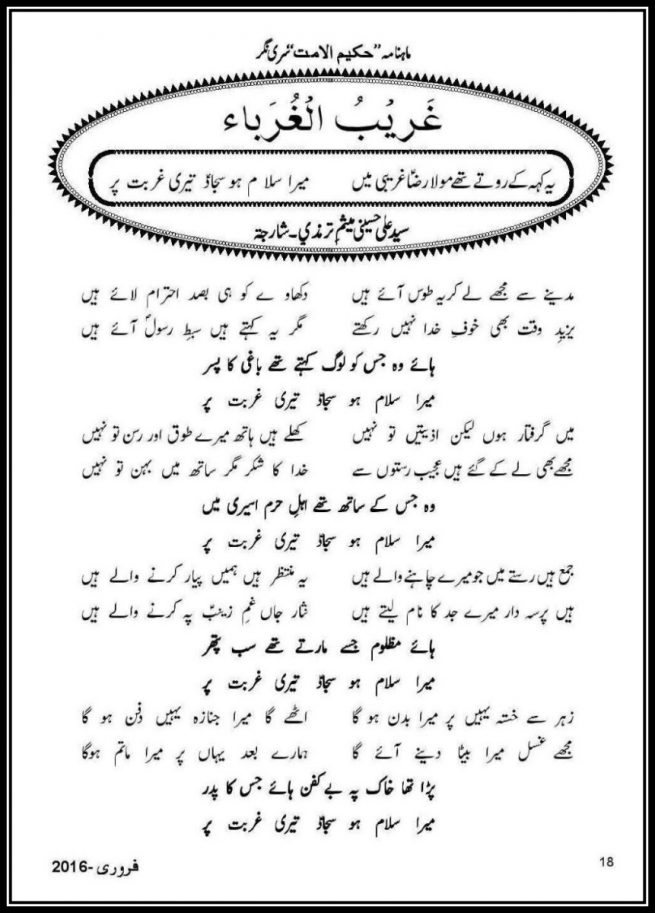 ماہنامہ ”حکیم الامت“ سری نگر
غَرِیْبُ الْغُرَباء
یہ کہہ کے روتے تھے مولا رضاؑ غریبی میں میرا سلام ہو سجادؑ تیری غربت پر
سید علی حسینی میثم ترمذی ۔ شارجہ
مدینے سے مجھے لے کر یہ طوس آئے ہیں دکھاوے کو ہی بصد احترام لائے ہیں
یزیدِ وقت بھی خوفِ خدا نہیں رکھتے مگر یہ کہتے ہیں سبطِ رسولؐ آئے ہیں
ہائے وہ جس کو لوگ کہتے تھے باغی کا پسر
میرا سلام ہو سجادؑ تیری غربت پر
میں گرفتار ہوں لیکن اذیتیں تو نہیں کھلے ہیں ہاتھ میرے طوق اور رسن تو نہیں
مجھے بھی لے کے گئے ہیں عجیب رستوں سے خدا کا شکر مگر ساتھ میں بہن تو نہیں
وہ جس کے ساتھ تھے اہلِ حرم اسیری میں
میرا سلام ہو سجادؑ تیری غربت پر
جمع ہیں رستے میں جو میرے چاہنے والے ہیں یہ منتظر ہیں ہمیں پیار کرنے والے ہیں
ہیں پرسہ دار میرے جد کا نام لیتے ہیں نثار جاں غمِ زینبؑ پہ کرنے والے ہیں
ہائے مظلوم جسے مارتے تھے سب پتھر
میرا سلام ہو سجادؑ تیری غربت پر
زہر سے خستہ یہیں پر میرا بدن ہو گا اٹھے گا میرا جنازہ یہیں دفن ہو گا
مجھے غسل میرا بیٹا دینے آئے گا ہمارے بعد یہاں پر میرا ماتم ہوگا
پڑا تھا خاک پہ بے کفن ہائے جس کا پدر
میرا سلام ہو سجادؑ تیری غربت پر
18
فروری -2016